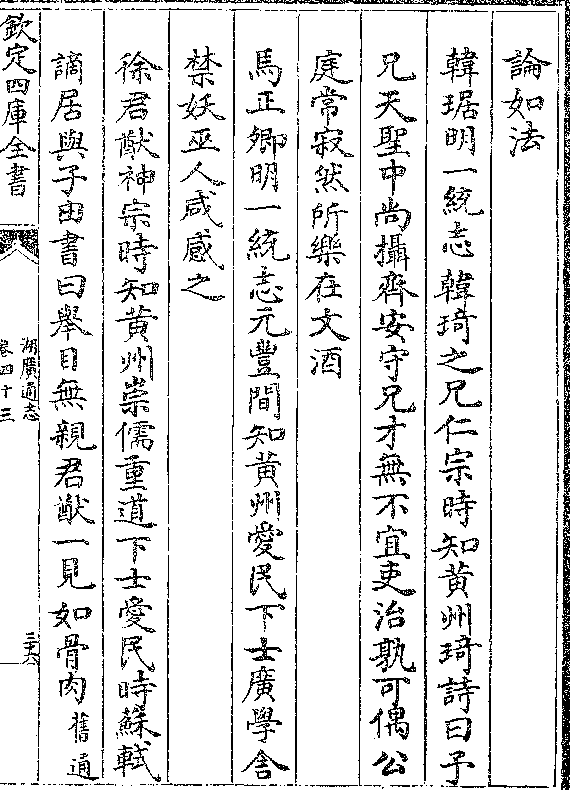 論如法
韓琚明一統志韓琦之兄仁宗時知黄州琦詩曰予
兄天聖中尚攝齊安守兄才無不宜吏治孰可偶公
庭常寂然所樂在文酒
馬正卿明一統志元豐間知黄州愛民下士廣學舎
禁妖巫人咸感之
徐君猷神宗時知黄州崇儒重道下士愛民時蘇軾
謫居與子由書曰舉目無親君猷一見如骨肉舊通
欽定四庫全書
湖廣通志
卷四十三
三六